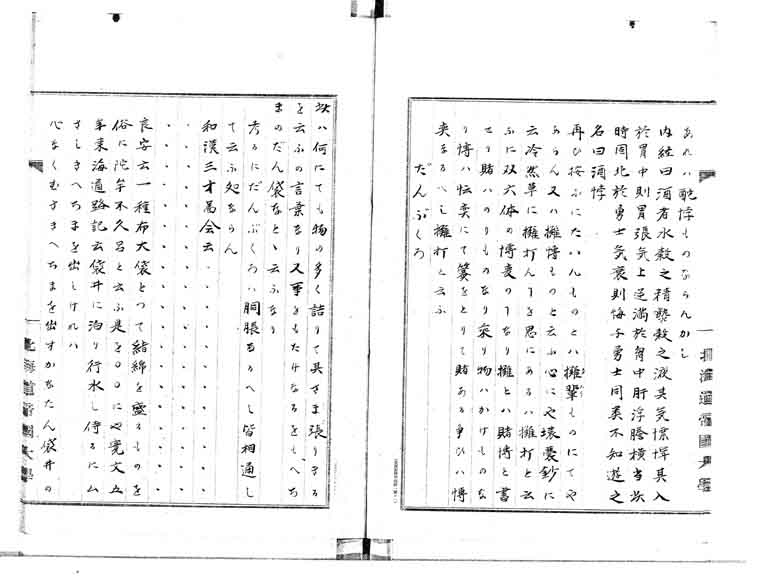 あれハ酩悖ものならんかし
内経曰酒者水穀之精熟穀之液其気慓悍其入
於胃中則胃張気上逆満於胸中肝浮膽横当此
時固比於勇士気衰則悔于勇士同類不知避之
名曰酒悖
再ひ按ふにたハんものとハ擁輩ものにてや
あらん又ハ擁博ものと云ふ心にや壒嚢鈔に
云冷然草に擁打んを思にあるハ擁打と云
ふに双六体の博変のなり擁とハ賭博と書
せり賭ハのりものなり乗り物ハかけものな
り博ハ伝奕にて簺をとりて賭ある争ひハ博
奕なるべし擁打と云ふ
だんぶくろ
欤ハ何にても物の多く詰りて其さま張りたる
を云ふの言葉なり又事をもたけなるをもへち
まのだん袋などゝ云ふなり
考るにだんぶくろハ胴脹なるへし皆相通し
て云ふ処ならん
和漢三才図会云
良安云一種布大袋とつて結綿を盛るものを
俗に陀牟不久呂と云ふ是を〇〇にや寛文五
年東海道路記云袋井に泊り行水し侍るにム
さしきへちまを出しけれハ
心なくむさきへちまを出すかなたん袋井の
北海道帝国大学
北海道帝国大学